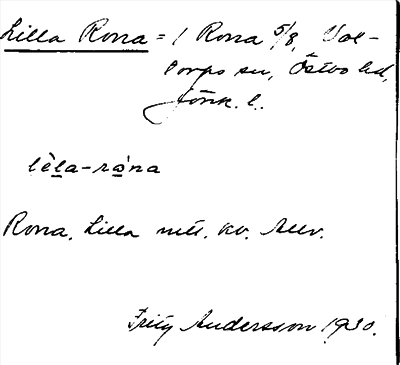 Lilla Rona = 1 Rona 5/8, Val-
torps sn, Östbo hd,
Jönk. l.
lèla-rǝ̀na
Rona, Lilla mtl. kv. Allv.
Fritz Andersson 1930.